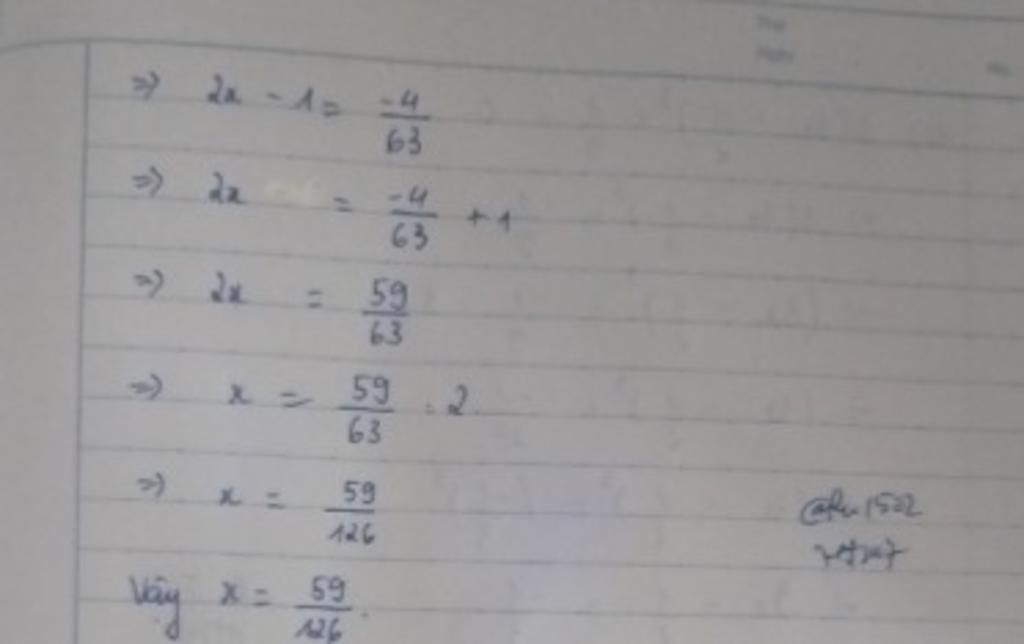 => 2x - 1 = -4/63
=> 2x = -4/63 + 1
=> 2x = 59/63
=> x = 59/63 : 2
=> x = 59/126
Vậy x = 59/126.